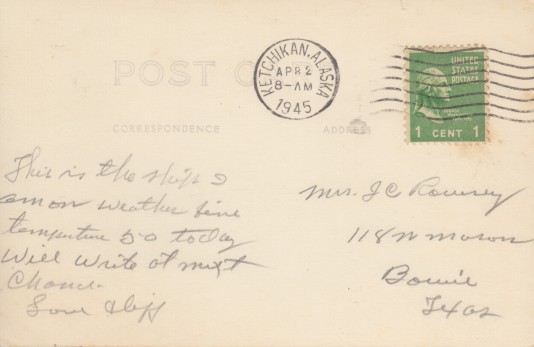 POST
KETCHIKAN, ALASKA
APR 2
8-AM
1945
UNITED
STATES
POSTAGE
1 CENT 1
CORRESPONDENCE
ADDRESS
This is the ship I
am on weather fine
temperture 50 today
Will Write at next
Chance.
Love
Mrs. J C
118 N Mason
Bowie
Texas